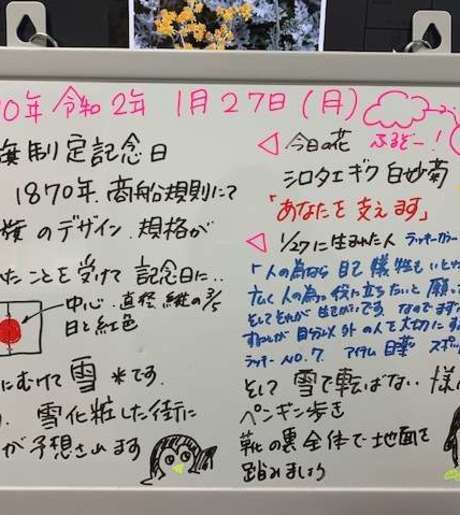 0年 令和2年 1月27日(月)
旗制定記念日
1870年.商船規則にて
旗のデザイン.規格が
たことを受けて 記念日に..
中心.直径 縦の3/5
日と紅色
にむけて 雪 *です.
雪化粧した街に
が予想されます
◁ 今日の花 ふるぞー!
シロタエギク 白妙菊
「あなたを支えます」
◁ 1/27に生まれた人 ラッキーカラー
「人の為なら自己犠牲もいとわ
広く人の為に役に立ちたいと願っ
そしてそれが
です なのでまず
自分以外の人を大切にす
ラッキー NO.7 アイテム 目薬 スポッ
そして 雪で転ばない様に
ペンギン歩き
靴の裏全体で地面を
踏みましょう